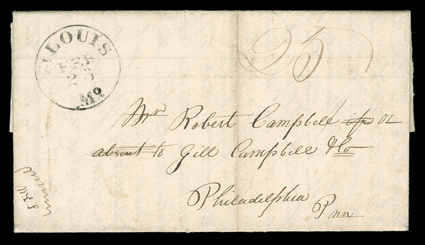 ST. LOUIS
FEB
Mo
25
Mr Robert Campbell if or
absent to Gill Campbell & Co
Philadelphia
Penn